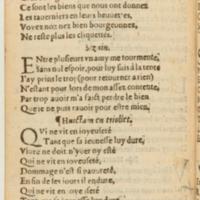 Ce sont les biens que nous ont donnez
Les tauerniers en leurs
Voyez noz nez bien bourgeonnez,
Ne reste plus les cliquettes.
Dizain.
ENtre plusieurs vn amy me tourmente,
Sans nul espoir, pour luy suis à la tente
T'ay prins le troq (pour retourner arien)
N'estant pour lors de mon assez contente,
Par trop auoir m'a faict perdre le bien
Que ie ne puis rauoir pour estre mien,
¶ Huictain en triolet.
QVi ne vit en ioyeuseté
Tant que sa ieunesse luy dure,
Viure ne doit n'yuer ny esté
Qui ne vit en ioyeuseté,
Dommage n'est si pauureté,
En fin de ses iours il endure,
Qui ne vit en ioyeuseté
Tant que sa ieunesse luy dure.